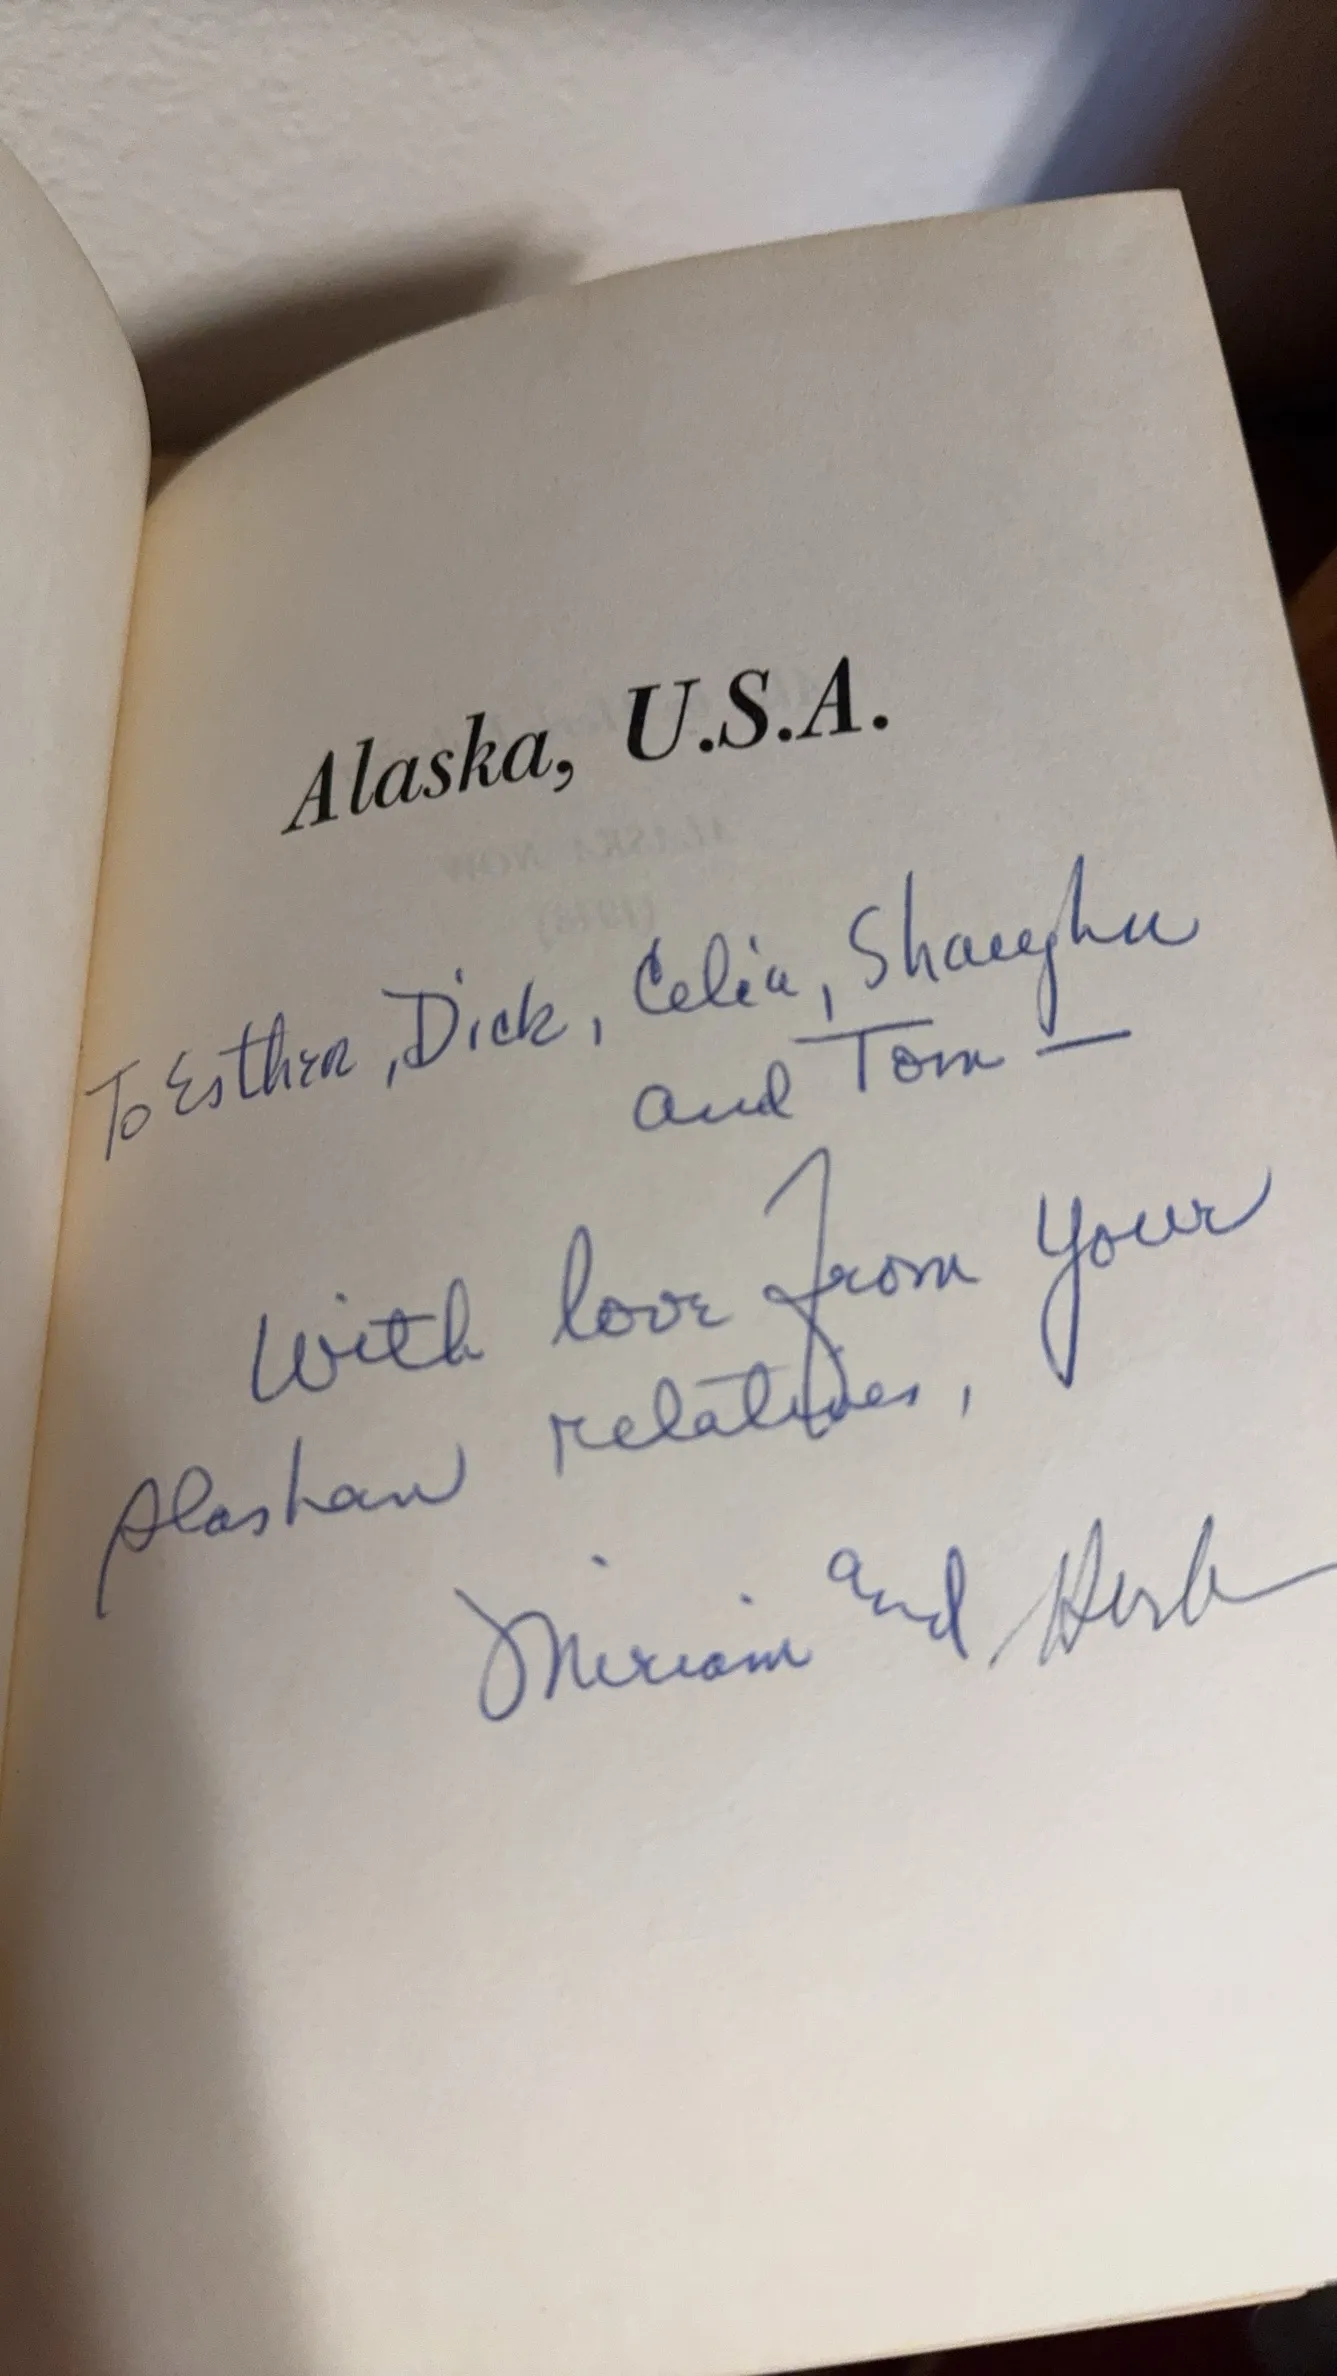 Alaska, U.S.A.
ALASKA NOW
To Esther, Dick, Celia,
and Tom —
With love from your
Alaskan relatives,
Miriam and Herb